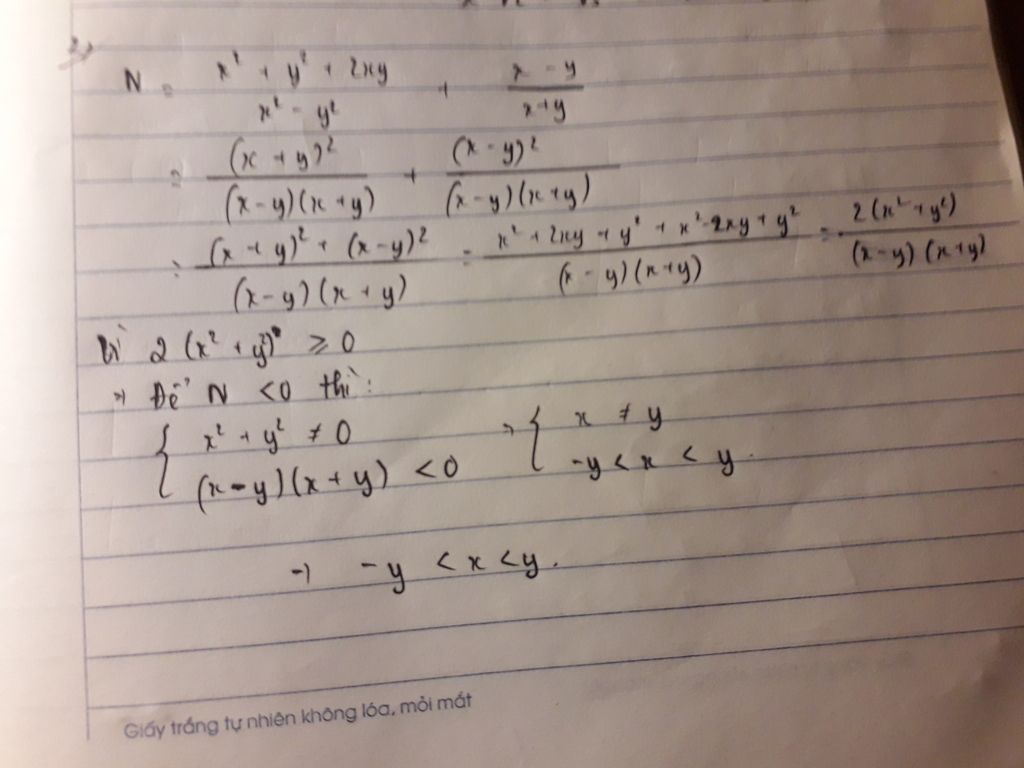 2,
N = x² + y² + 2xy / x² - y² + x - y / x+y
= (x + y)² / (x-y)(x+y) + (x - y)² / (x-y)(x+y)
= (x + y)² + (x-y)² / (x-y)(x+y) = x² + 2xy + y² + x² - 2xy + y² / (x - y)(x+y) = 2(x² + y²) / (x-y)(x+y)
Vì 2(x² + y²) ≥ 0
→ Để N < 0 thì:
{ x² + y² ≠ 0 → { x ≠ y
(x-y)(x+y) < 0 -y < x < y.
→ -y < x < y.
Giấy trắng tự nhiên không lóa, mỏi mắt